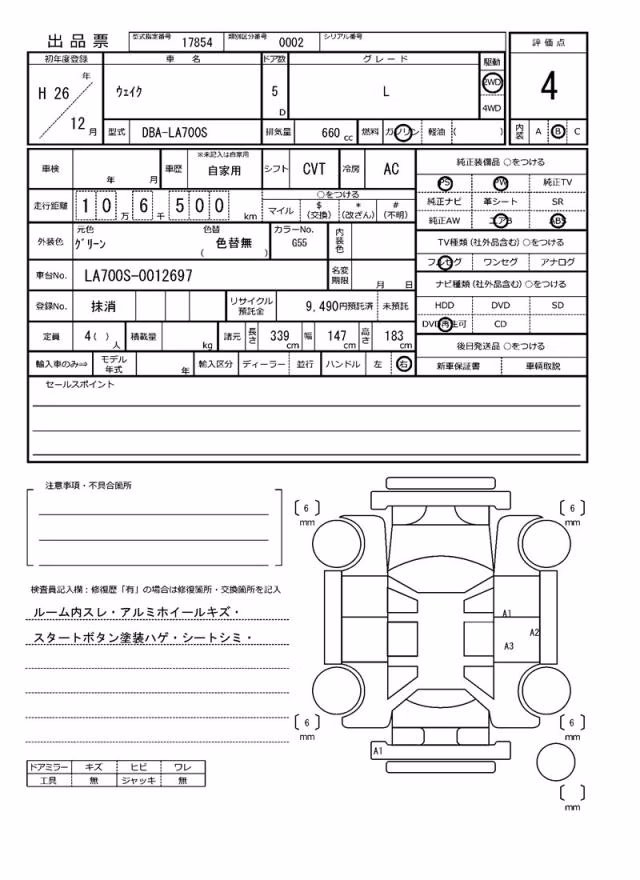 出品票 型式指定番号 17854 類別区分番号 0002 シリアル番号
評価点
4
初年度登録 車名 ドア数 グレード 駆動
H 26 年 12 月 ウェイク 5 D L 2WD 4WD
型式 DBA-LA700S 排気量 660 cc 燃料 ガソリン 軽油 ( ) 内装 A B C
車検 年 月 車歴 ※未記入は自家用 自家用 シフト CVT 冷房 AC
走行距離 1 0 万 6 千 5 0 0 km ○をつける マイル $ (交換) * (改ざん) # (不明)
外装色 元色 グリーン 色替 色替無 ( ) カラーNo. G55 内装色
車台No. LA700S-0012697 名変期限 月 日
登録No. 抹消 リサイクル預託金 9,490円預託済 未預託
定員 4( ) 人 積載量 kg 諸元 長さ 339 cm 幅 147 cm 高さ 183 cm
輸入車のみ⇒ モデル年式 年 輸入区分 ディーラー 並行 ハンドル 左 右
純正装備品 ○をつける
PS PW 純正TV
純正ナビ 革シート SR
純正AW エアB ABS
TV種類 (社外品含む) ○をつける
フルセグ ワンセグ アナログ
ナビ種類 (社外品含む) ○をつける
HDD DVD SD
DVD再生可 CD
後日発送品 ○をつける
新車保証書 車輌取説
セールスポイント
注意事項・不具合箇所
検査員記入欄：修復歴「有」の場合は修復箇所・交換箇所を記入
ルーム内スレ・アルミホイールキズ・
スタートボタン塗装ハゲ・シートシミ・
ドアミラー キズ ヒビ ワレ
工具 無 ジャッキ 無
〔 6 〕 mm
〔 6 〕 mm
A1
A2
A3
〔 6 〕 mm
〔 6 〕 mm
A1
〔 〕 mm